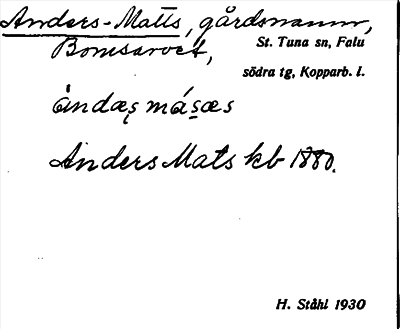 Anders-Matts, gårdsnamn,
Bomsarvet,
St. Tuna sn, Falu
södra tg, Kopparb. l.
àndæs másæs
Anders Mats kb 1880.
H. Ståhl 1930